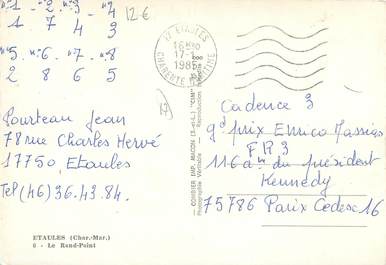 n°1 - n°2 - n°3 - n°4
1 7 4 3
n°5 - n°6 - n°7 - n°8
2 8 6 5
12€
17 ETAULES
16H00
17-1
1985
CHARENTE MARITIME
Pourteau Jean
78 rue Charles Hervé
17750 Etaules
Tel (46) 36.43.84.
ETAULES (Char.-Mar.)
6 - Le Rond-Point
COMBIER IMP. MACON (S.-et-L.) "CIM"
Photographie Véritable - Reproduction interdite
Cadence 3
gd prix Enrico Massias
FR3
116 av. du président
Kennedy
75786 Paris Cedex 16